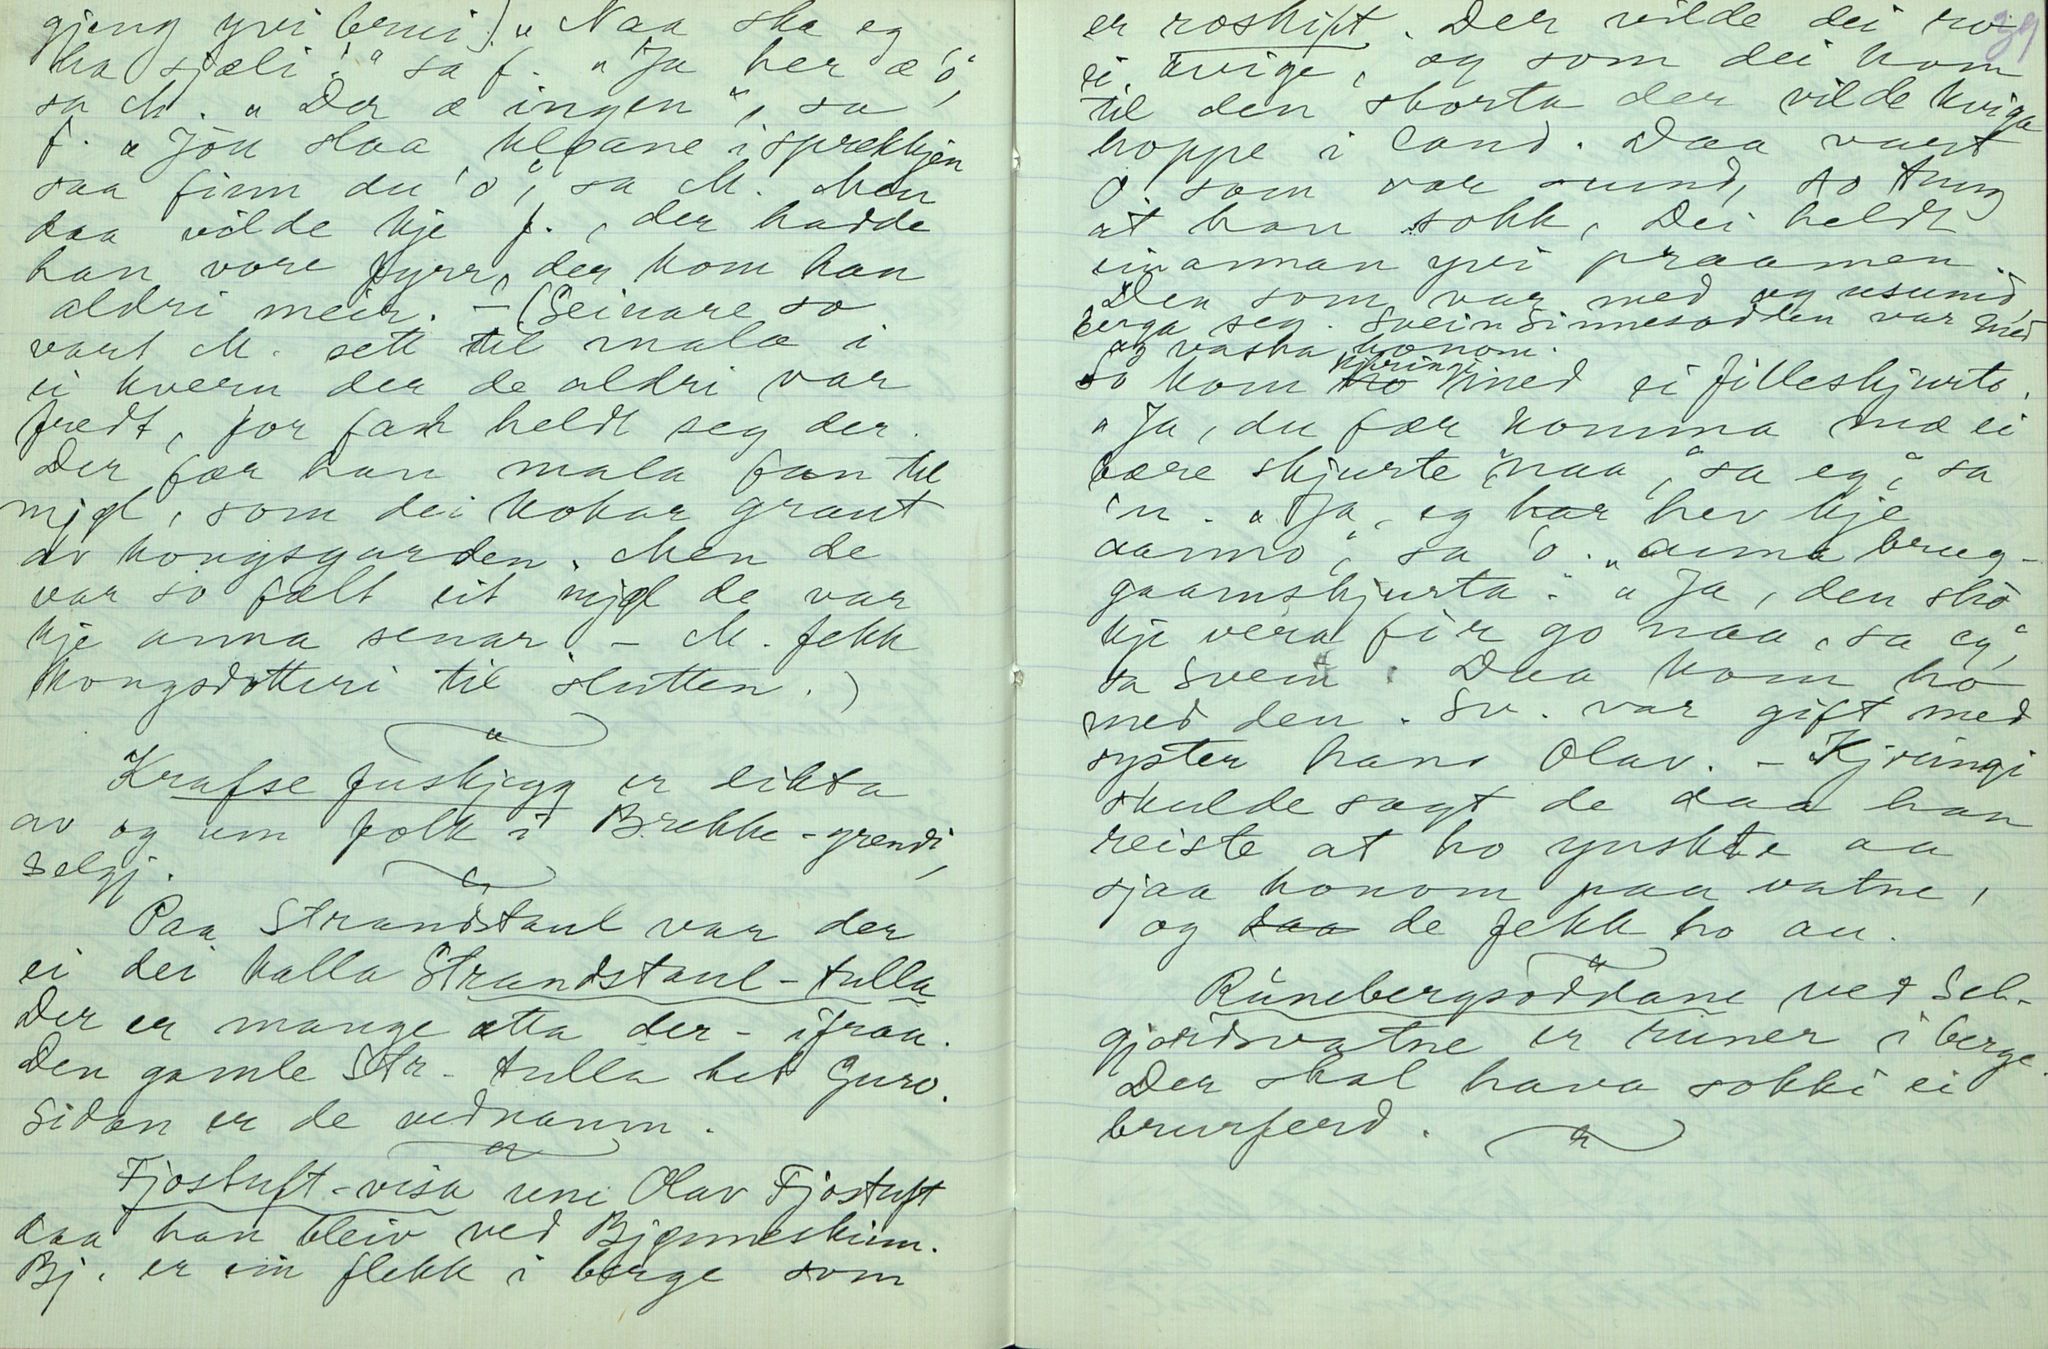 gjeng yvi brui]. „Naa ska eg
ha sjæli!" sa f. „Ja her æ 'o",
sa M. „Der æ ingen", sa
f. „Jou slaa kloane i sprekkjen
saa finn du 'o", sa M. Men
daa vilde kje f., der hadde
han vore fyrr, der kom han
aldri meir. – (Seinare so
vart M. sett til mala i
ei kvern der de aldri var
fredt, for fan heldt seg der.
Der fær han mala fan til
mjøl, som dei kokar graut
av kongsgarden. Men de
var so fælt eit mjøl de var
kje anna senar. – M. fekk
kongsdotteri til slutten.)
Krafse Fuskjegg er dikta
av og um folk i Brekke-grendi,
Selgj.
Paa Strandstaul var der
ei dei kalla Strandstaul-tulla
Der er mange ætta der-ifraa.
Den gamle Str-tulla het Guro.
Sidan er de vednamn.
Fjostuft-visa um Olav Fjostuft
daa han bleiv ved Bjønneskinn.
Bj. er ein flekk i berge som
39
er roskift. Der vilde dei ro
ei kvige, og som dei kom
til den skorta der vilde kviga
hoppe i land. Daa vart
O som var sund, so tung
at han sokk, Dei heldt
einannan yvi praamen.
Den som var med og usund,
berga seg. Svein Sinnesodden var med
og vaska honom.
So kom kjeringi med ei filleskjurte.
„Ja, du fær komma mæ ei
bære skjurte naa", sa eg", sa
'n. „Ja, eg har hev kje
aanno", sa 'o. „anna brug-
gaamskjurta." „Ja, den sko
kje vera fir go naa, sa eg",
sa Svein. Daa kom ho
med den. Sv. var gift med
syster hans Olav. – Kjeringi
skulde sagt de daa han
reiste at ho ynskte aa
sjaa honom paa vatne,
og daa de fekk ho au.
Runebergsoddane ved Sel-
gjordsvatne er runer i berge.
Der skal hava sokki ei
brurferd.